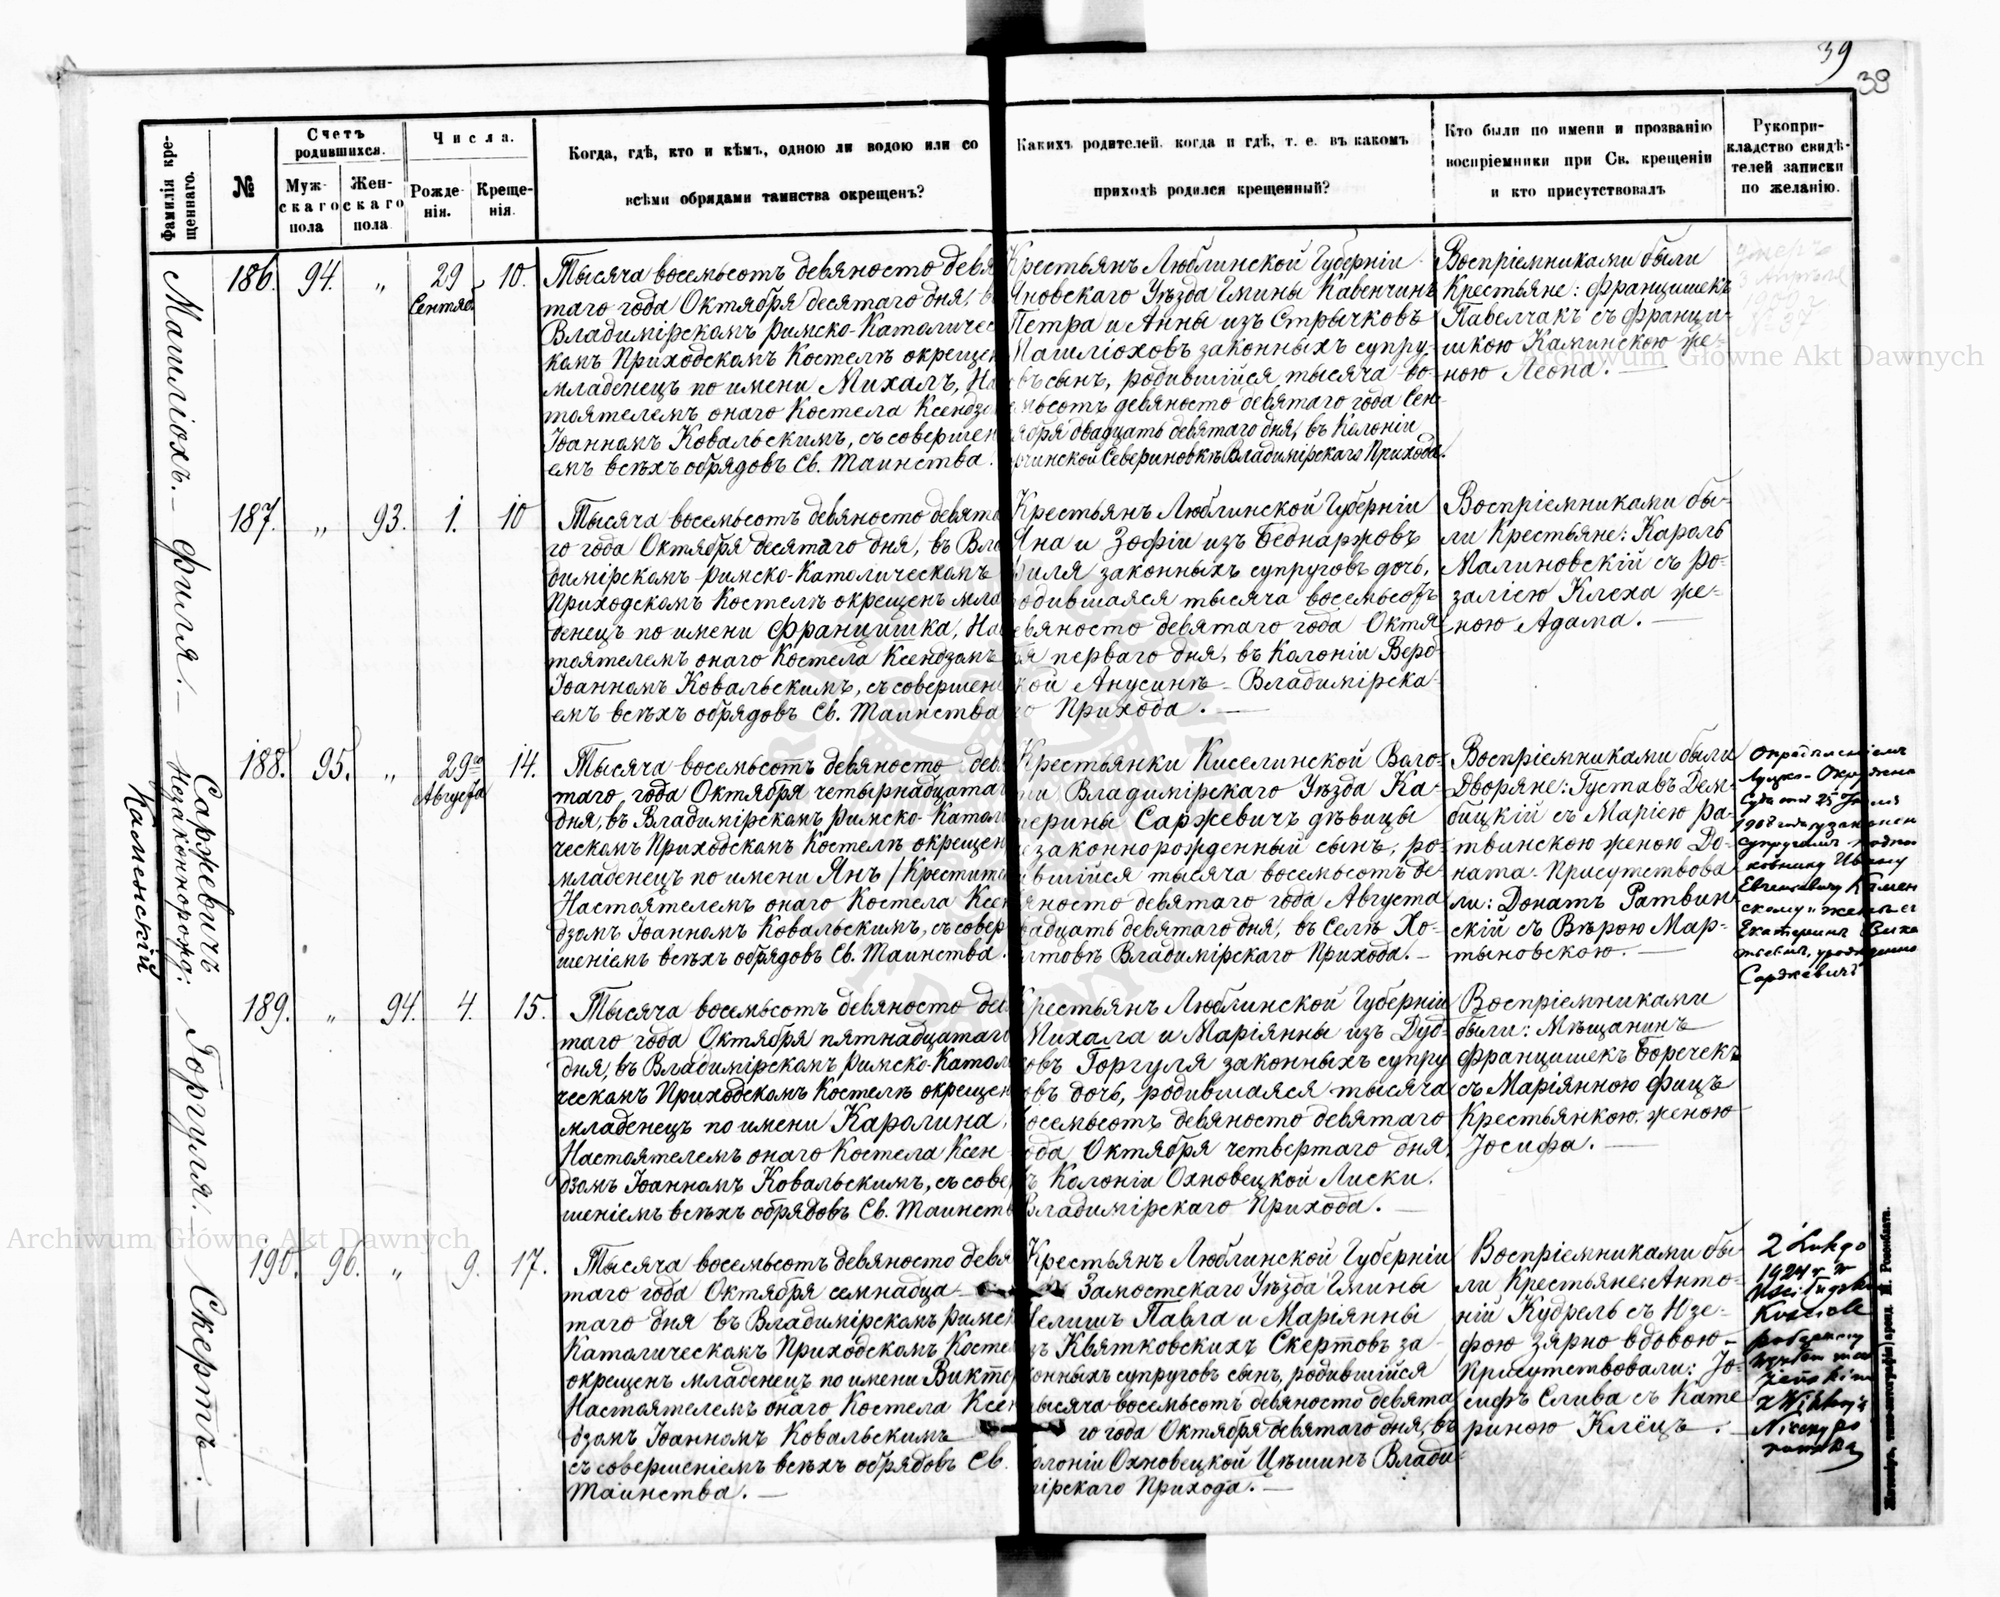 39
38
Фамилія кре-
щеннаго.
№
Счетъ
родившихся.
Муж-
скаго
пола
Жен-
скаго
пола
Числа.
Рожде-
нія.
Креще-
нія.
Когда, гдѣ, кто и кѣмъ, одною ли водою или со
всѣми обрядами таинства окрещенъ?
Какихъ родителей, когда и гдѣ, т. е. въ какомъ
приходѣ родился крещенный?
Кто были по имени и прозванію
воспріемники при Св. крещеніи
и кто присутствовалъ
Рукопри-
кладство свидѣ-
телей записки
по желанію.
Машліохъ.
186. 94. „ 29 Сентяб. 10.
Тысяча восемьсотъ девяносто девя
таго года Октября десятаго дня, в
Владимірскомъ Римско-Католичес
комъ Приходскомъ Костелѣ окрещен
младенецъ по имени Михалъ, На
тоятелемъ онаго Костела Ксендзо
Іоанномъ Ковальскимъ, съ совершен
емъ всѣхъ обрядовъ Св. Таинства.
Крестьянъ Люблинской Губерніи
Яновскаго Уѣзда Гмины Кавенчинъ
Петра и Анны изъ Стрычковъ
Машліоховъ законныхъ супру-
овъ сынъ, родившійся тысяча во-
емьсотъ девяносто девятаго года Сен-
ября двадцать девятаго дня, въ Колоніи
Севериновкѣ Владимірскаго Прихода.
Воспріемниками были
Крестьяне: Францишекъ
Павелчакъ съ Францик-
шкою Каминскою же-
ною Леона.
Умеръ
3 Апрѣля
1909 г.
№ 37
Филя.
187. „ 93. 1. 10
Тысяча восемьсотъ девяносто девята
го года Октября десятаго дня, въ Вла
димірскомъ Римско-Католическомъ
Приходскомъ Костелѣ окрещенъ мла
денецъ по имени Францишка, На
тоятелемъ онаго Костела Ксендзомъ
Іоанномъ Ковальскимъ, съ совершен
емъ всѣхъ обрядовъ Св. Таинства
Крестьянъ Люблинской Губерніи
Яна и Зофіи изъ Беднаржовъ
Филя законныхъ супруговъ дочь,
родившаяся тысяча восемьсотъ
евяносто девятаго года Октя
ря перваго дня, въ Колоніи Верб
кой Анусинѣ Владимірска-
го Прихода.
Воспріемниками бы-
ли Крестьяне: Кароль
Малиновскій съ Ро-
заліею Клеха же-
ною Адама.
Саржевичъ
незаконнорожд:
Каменскій
188. 95. „ 29го Августа 14.
Тысяча восемьсотъ девяносто дев
таго года Октября четырнадцатаг
дня, въ Владимірскомъ Римско-Катол
ческомъ Приходскомъ Костелѣ окрещен
младенецъ по имени Янъ /Крестит
Настоятелемъ онаго Костела Ксен
дзомъ Іоанномъ Ковальскимъ, съ совер
шеніемъ всѣхъ обрядовъ Св. Таинства.
Крестьянки Киселинской Воло-
ти Владимірскаго Уѣзда Ка-
терины Саржевичъ дѣвицы
езаконнорожденный сынъ, ро-
ившійся тысяча восемьсотъ де-
яносто девятаго года Августа
вадцать девятаго дня, въ Селѣ Хо-
товѣ Владимірскаго Прихода.
Воспріемниками были
Дворяне: Густавъ Дем-
бицкій съ Маріею Ра-
твинскою женою До-
ната. Присутствова-
ли: Донатъ Ратвин-
скій съ Вѣрою Мар-
тыновскою.
Опредѣленіемъ
Луцкаго Окружна
Суда отъ 25 Іюля
1908 года узаконенъ
супругами подпол
ковнику Ивану
Евгеніевичу Камен
скому и женѣ его
Екатеринѣ Вике
нтьевнѣ, урожденно
Саржевичъ
Горгуля.
189. „ 94. 4. 15.
Тысяча восемьсотъ девяносто дев
таго года Октября пятнадцатаго
дня, въ Владимірскомъ Римско-Катол
ческомъ Приходскомъ Костелѣ окрещен
младенецъ по имени Каролина,
Настоятелемъ онаго Костела Ксен
дзомъ Іоанномъ Ковальскимъ, съ совер
шеніемъ всѣхъ обрядовъ Св. Таинств
Крестьянъ Люблинской Губерніи
Михала и Маріянны изъ Дуд-
ковъ Горгуля законныхъ супру
овъ дочь, родившаяся тысяча
восемьсотъ девяносто девятаго
года Октября четвертаго дня,
въ Колоніи Охновецкой Лиски.
Владимірскаго Прихода.
Воспріемниками
были: Мѣщанинъ
Францишекъ Боречекъ
съ Маріянною Фицъ
Крестьянкою, женою
Іосифа.
Скертъ:
190. 96. „ 9. 17.
Тысяча восемьсотъ девяносто девя
таго года Октября семнадца-
таго дня въ Владимірскомъ Римск
Католическомъ Приходскомъ Косте
окрещенъ младенецъ по имени Виктор
Настоятелемъ онаго Костела Ксен
дзомъ Іоанномъ Ковальскимъ
съ совершеніемъ всѣхъ обрядовъ Св.
Таинства.
Крестьянъ Люблинской Губерніи
Замостскаго Уѣзда Гмины
Павла и Маріянны
изъ Квятковскихъ Скертовъ за-
конныхъ супруговъ сынъ, родившійся
тысяча восемьсотъ девяносто девята
го года Октября девятаго дня, въ
Колоніи Охновецкой Цѣшинъ Влади-
мірскаго Прихода.
Воспріемниками бы-
ли Крестьяне: Анто-
ній Кудрель съ Юзе-
фою Зярно вдовою
Присутствовали: Іо-
сифъ Слива съ Кате
риною Клёцъ.
2 Lutego
1924 r. w
Uściługskim
Kościele
Житомiръ, типо-литографія аренд. И. Розенблата.
Archiwum Główne Akt Dawnych
Archiwum Główne Akt Dawnych